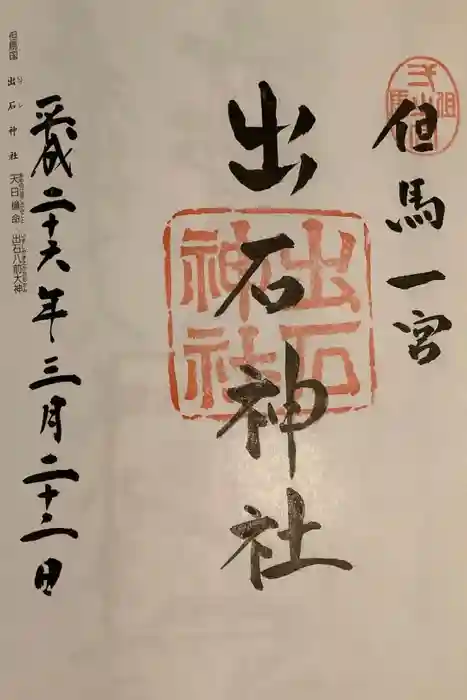 但馬一宮
出石神社
出石
神社
平成二十六年三月二十二日
但馬国 出石神社 天日槍命 出石八前大神